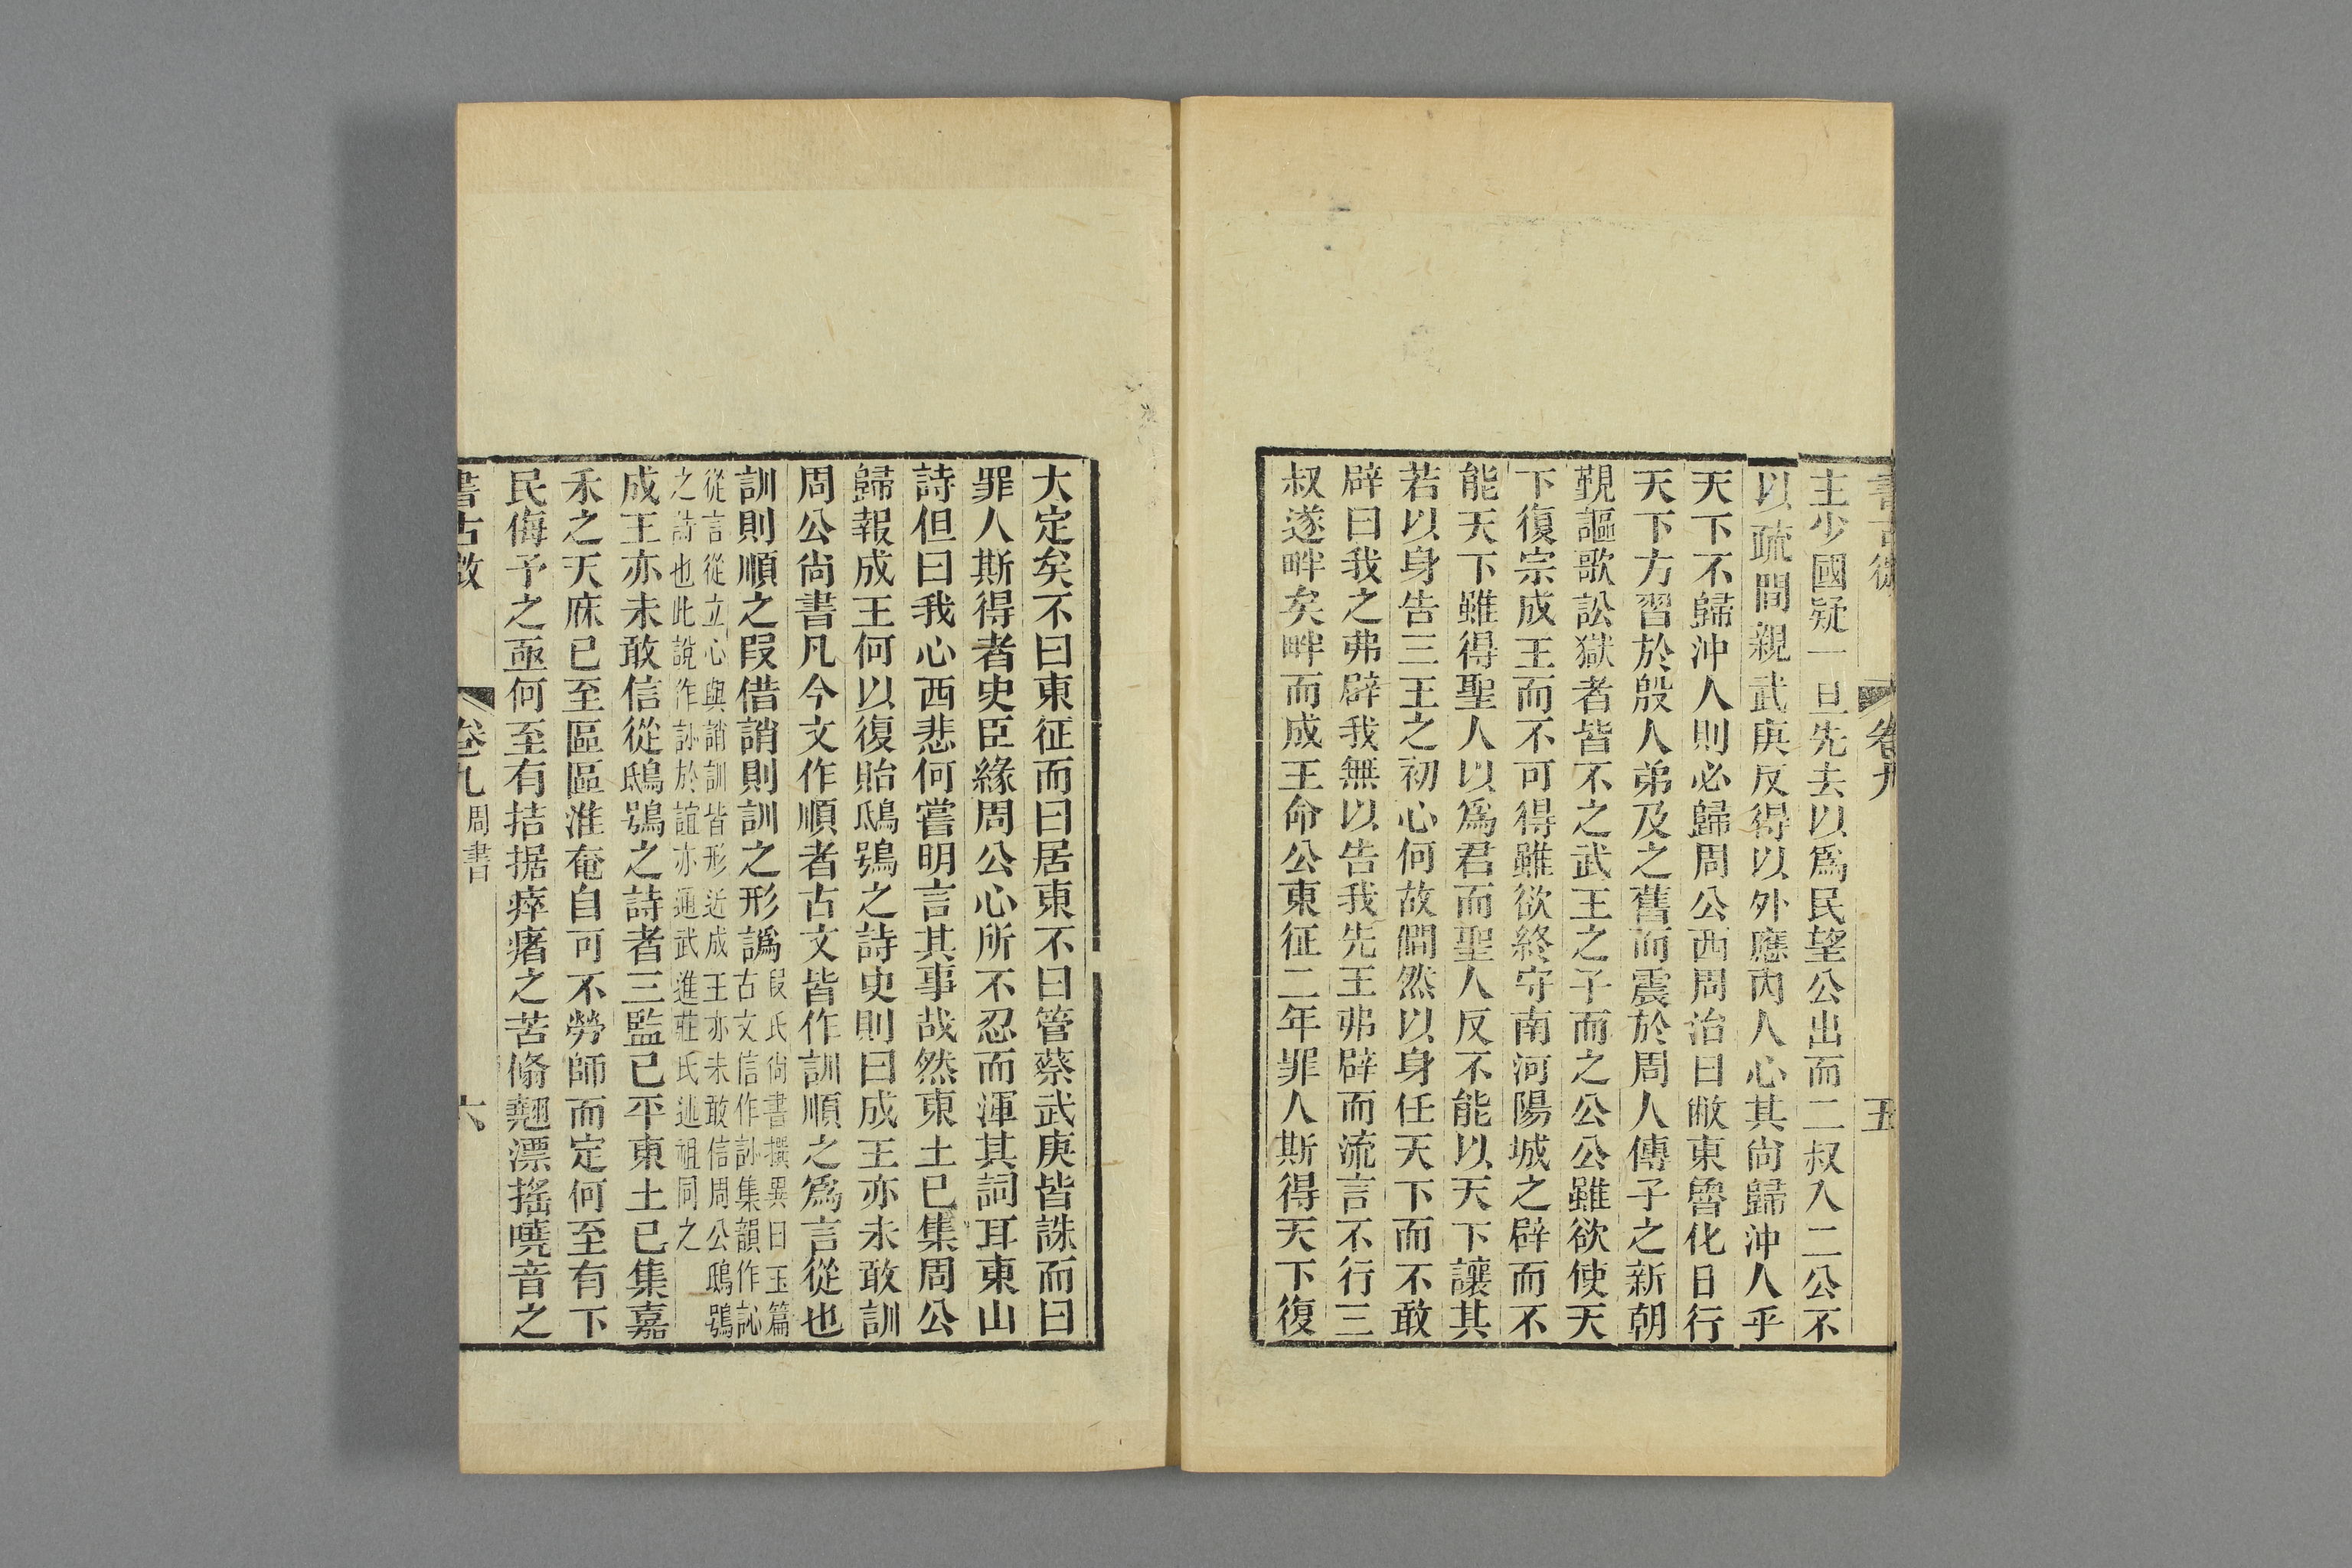 書古微 卷九 五
主少國疑一旦先去以爲民望公出而二叔入二公不
以疏間親武庚反得以外應內人心其尙歸沖人乎
天下不歸沖人則必歸周公西周治日敝東魯化日行
天下方習於殷人弟及之舊而震於周人傳子之新朝
覲謳歌訟獄者皆不之武王之子而之公公雖欲使天
下復宗成王而不可得雖欲終守南河陽城之辟而不
能天下雖得聖人以爲君而聖人反不能以天下讓其
若以身告三王之初心何故僩然以身任天下而不敢
辟曰我之弗辟我無以告我先王弗辟而流言不行三
叔遂畔矣畔而成王命公東征二年罪人斯得天下復
大定矣不曰東征而曰居東不曰管蔡武庚皆誅而曰
罪人斯得者史臣緣周公心所不忍而渾其詞耳東山
詩但曰我心西悲何嘗明言其事哉然東土已集周公
歸報成王何以復貽鴟鴞之詩史則曰成王亦未敢訓
周公尙書凡今文作順者古文皆作訓順之爲言從也
訓則順之叚借誚則訓之形譌段氏尙書撰異曰玉篇
古文信作訫集韻作訫
從言從立心與誚訓皆形近成王亦未敢信周公鴟鴞
之詩也此說作訫於誼亦通武進莊氏述祖同之
成王亦未敢信從鴟鴞之詩者三監已平東土已集嘉
禾之天庥已至區區淮奄自可不勞師而定何至有下
民侮予之亟何至有拮据瘁瘏之苦翛翹漂搖嘵音之
書古微 卷九周書 六